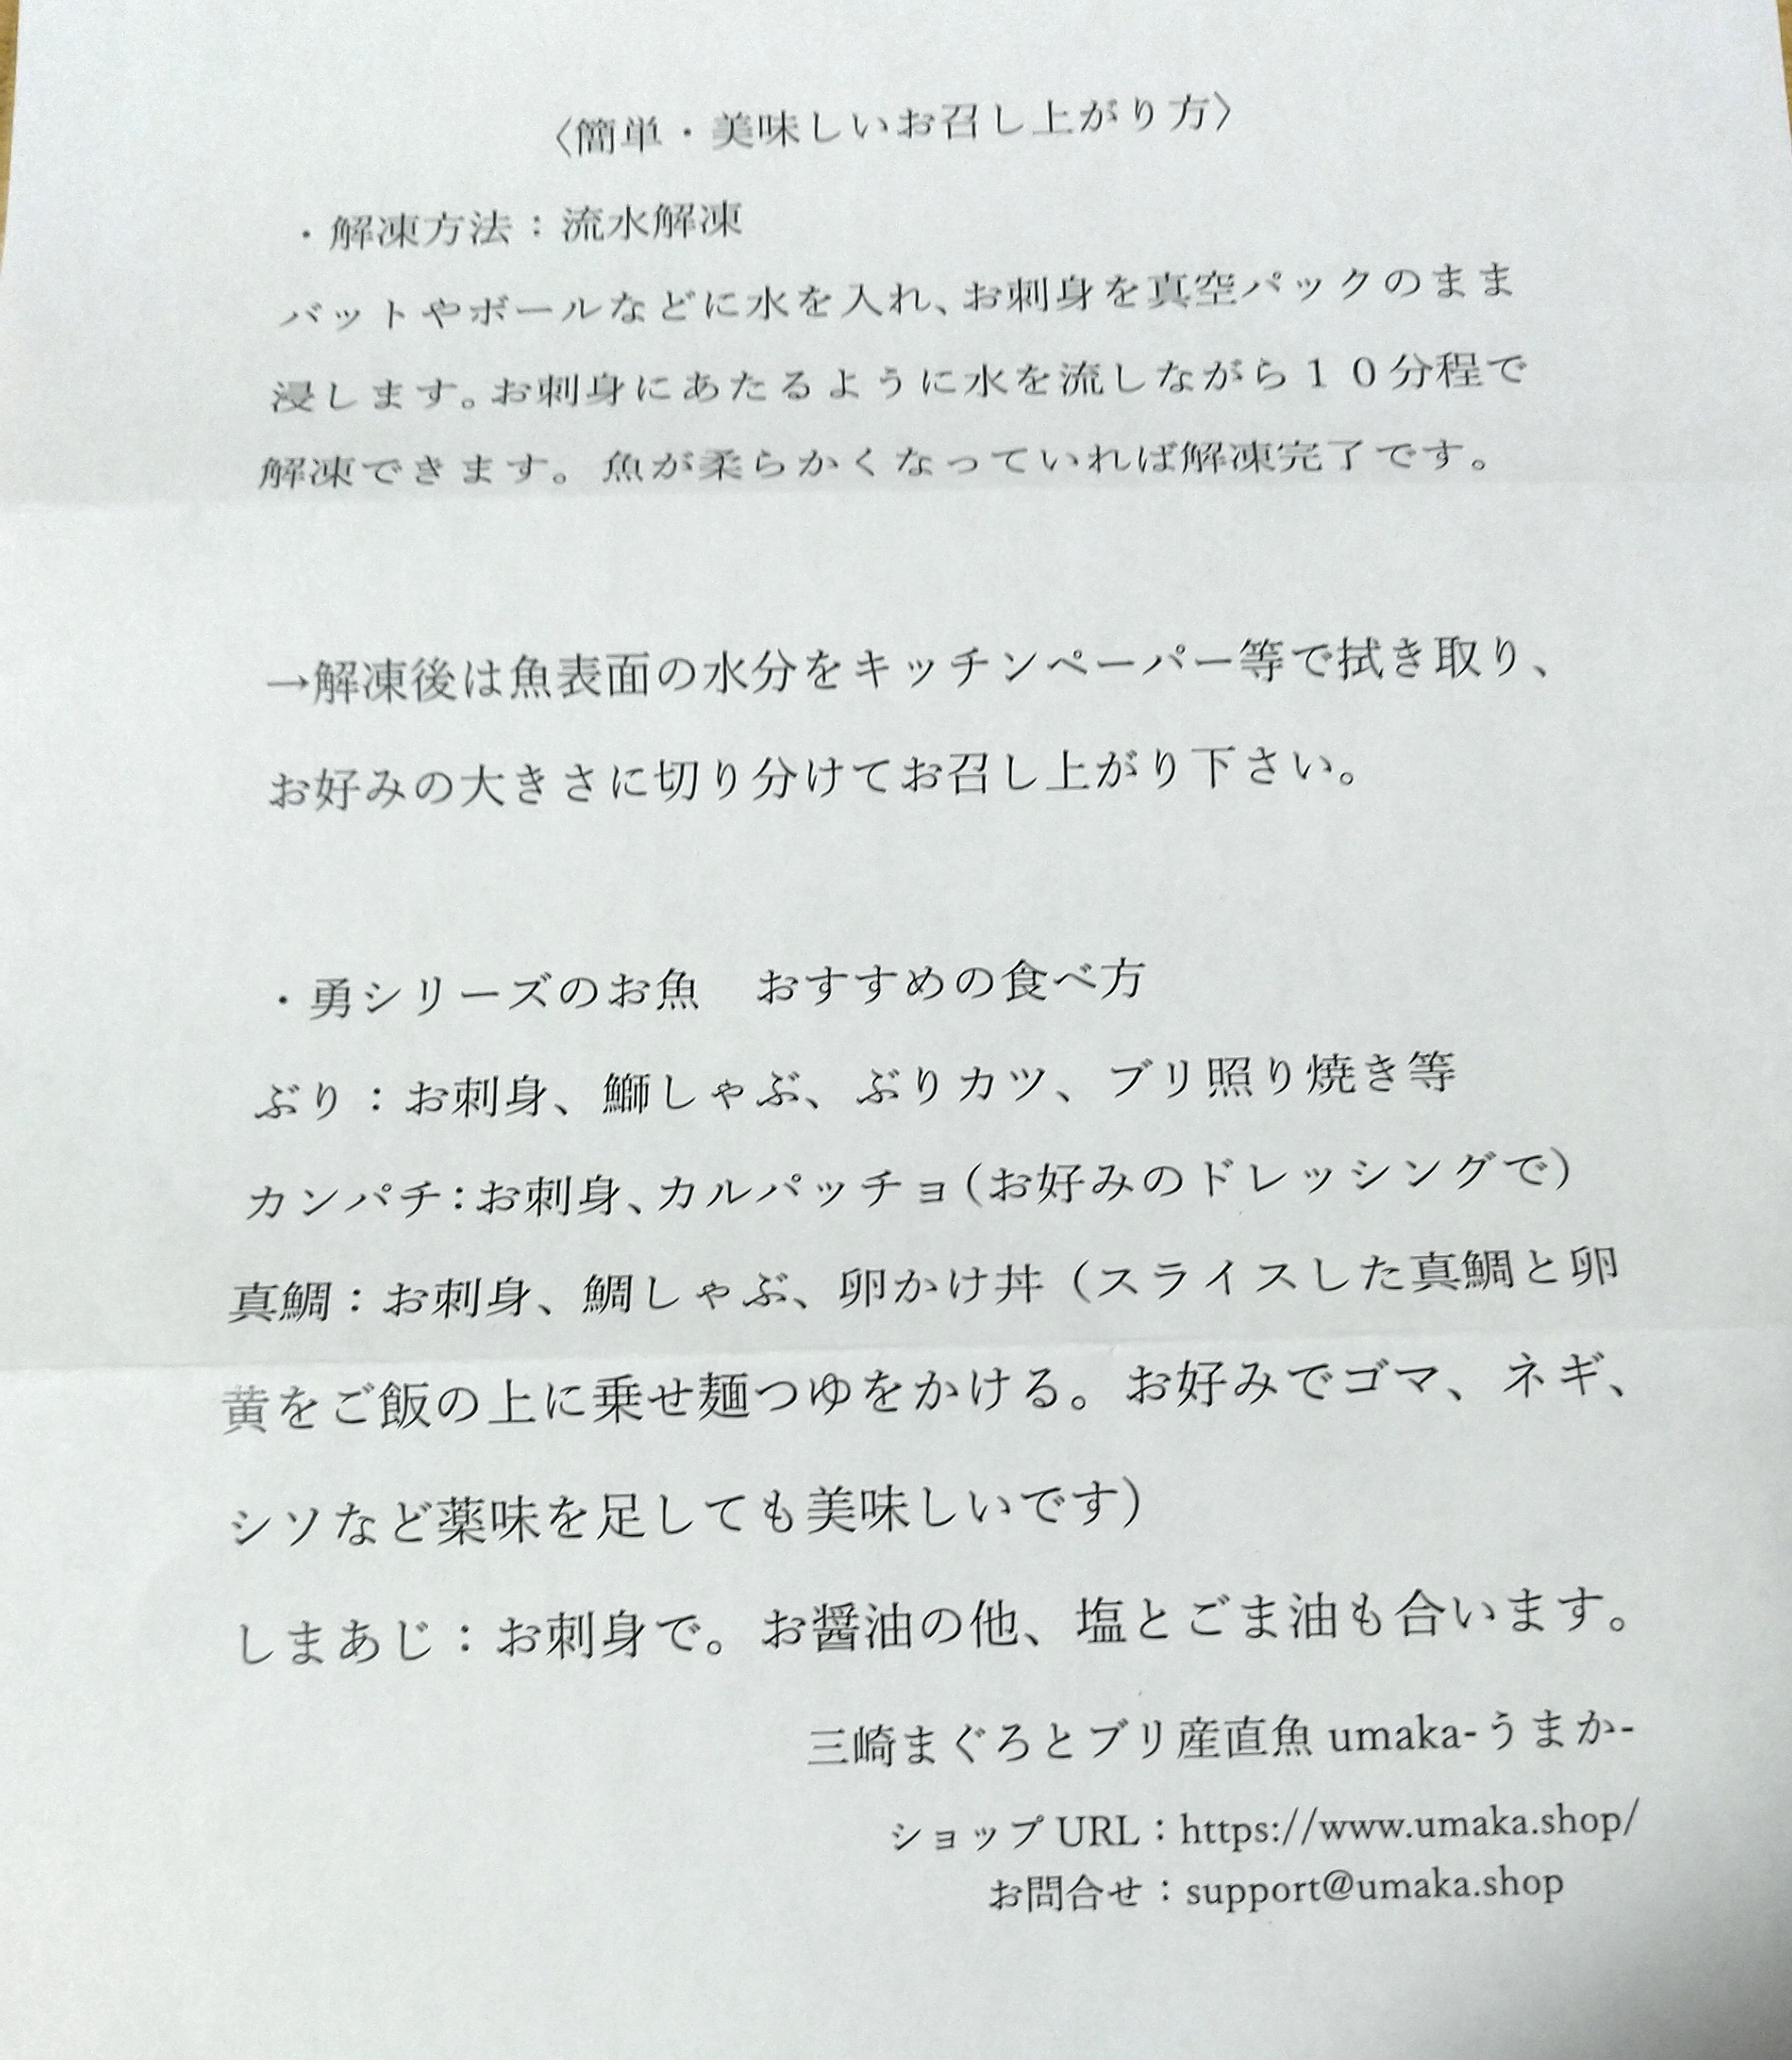 〈簡単・美味しいお召し上がり方〉
・解凍方法：流水解凍
バットやボールなどに水を入れ、お刺身を真空パックのまま
浸します。お刺身にあたるように水を流しながら１０分程で
解凍できます。魚が柔らかくなっていれば解凍完了です。
→解凍後は魚表面の水分をキッチンペーパー等で拭き取り、
お好みの大きさに切り分けてお召し上がり下さい。
・勇シリーズのお魚　おすすめの食べ方
ぶり：お刺身、鰤しゃぶ、ぶりカツ、ブリ照り焼き等
カンパチ：お刺身、カルパッチョ（お好みのドレッシングで）
真鯛：お刺身、鯛しゃぶ、卵かけ丼（スライスした真鯛と卵
黄をご飯の上に乗せ麺つゆをかける。お好みでゴマ、ネギ、
シソなど薬味を足しても美味しいです）
しまあじ：お刺身で。お醤油の他、塩とごま油も合います。
三崎まぐろとブリ産直魚 umaka-うまか-
ショップ URL：https://www.umaka.shop/
お問合せ：support@umaka.shop